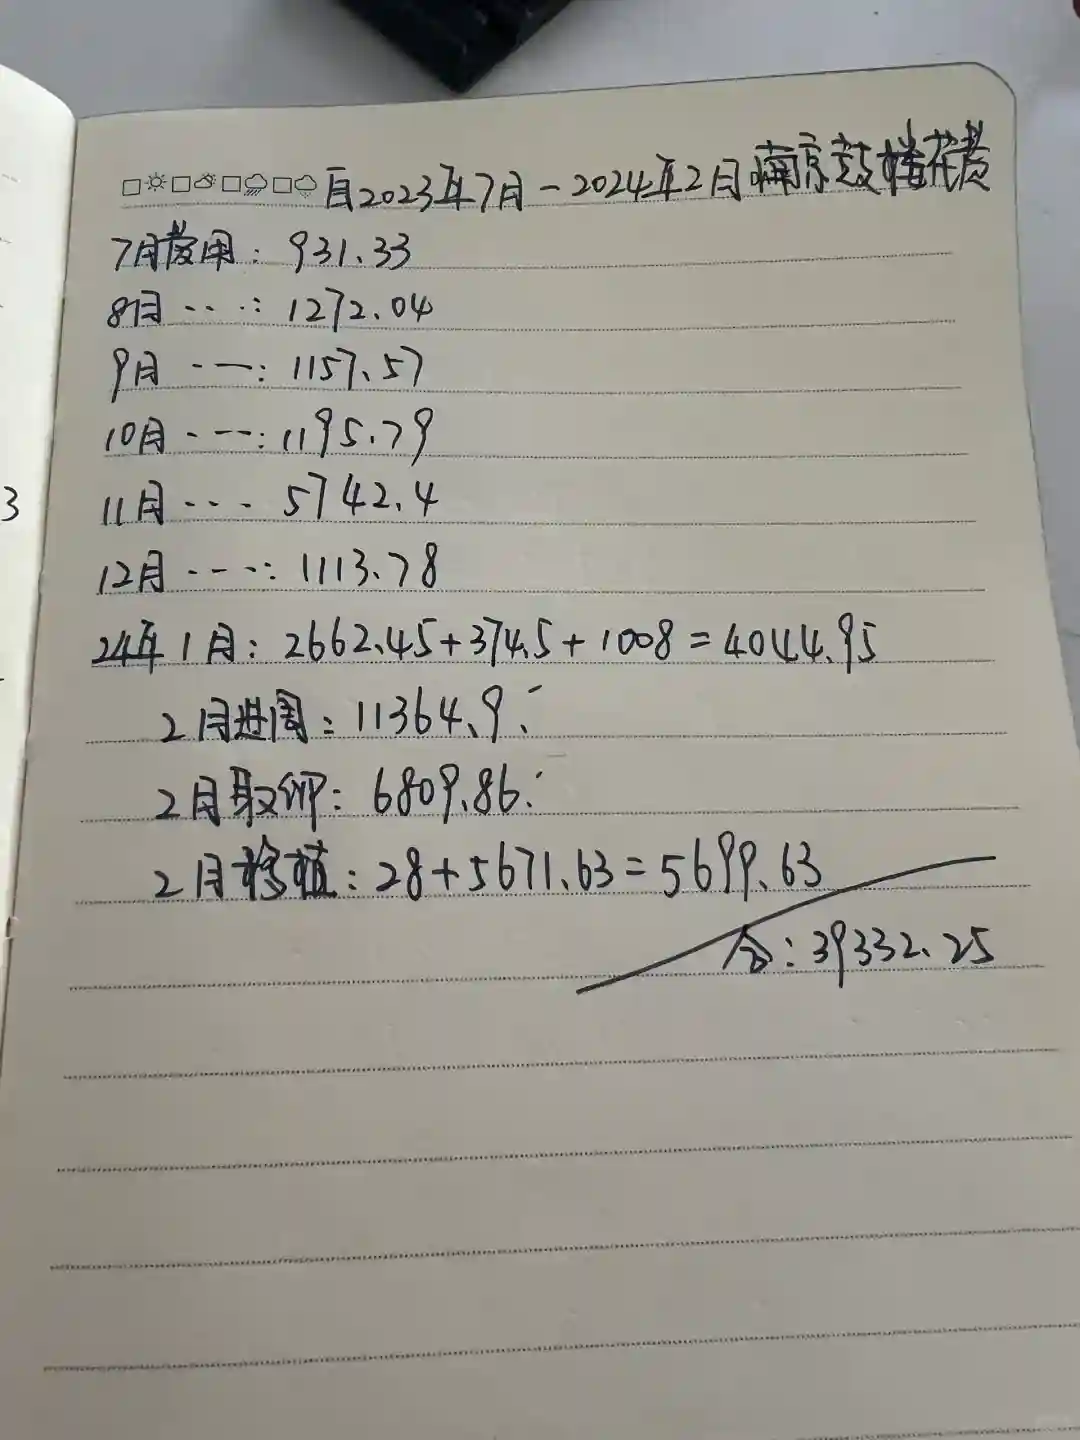 自2023年7月-2024年2月南京鼓楼花费
7月费用: 931.33
8月·····: 1272.04
9月·--: 1157.57
10月·---: 1195.79
11月··· 5742.4
12月·---: 1113.78
24年1月: 2662.45+374.5+1008=4044.95
2月进周: 11364.9
2月取卵: 6809.86
2月移植: 28+5671.63=5699.63
合: 39332.25
3